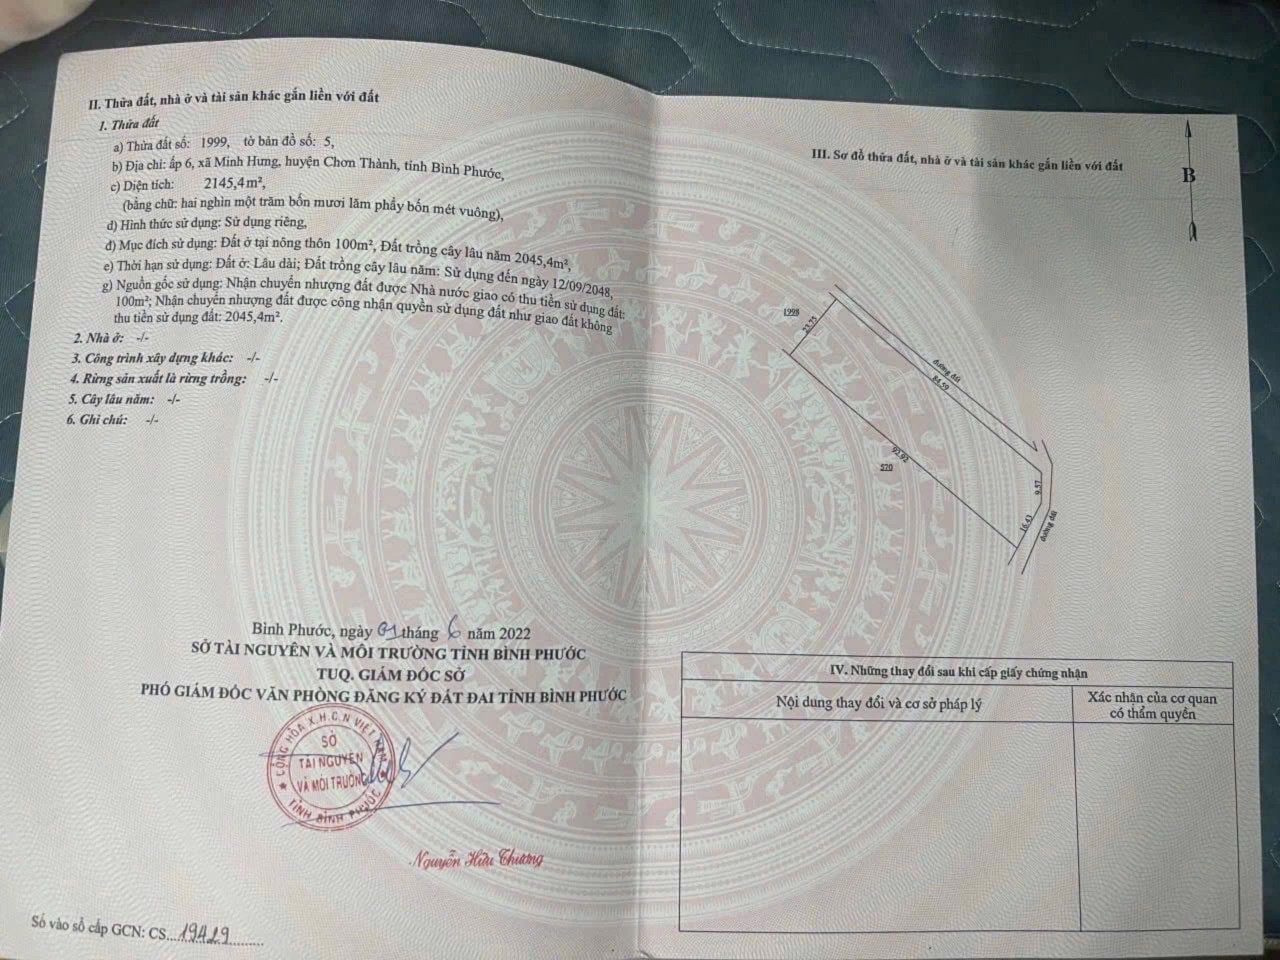 II. Thửa đất, nhà ở và tài sản khác gắn liền với đất
1. Thửa đất
a) Thửa đất số: 1999, tờ bản đồ số: 5,
b) Địa chỉ: ấp 6, xã Minh Hưng, huyện Chơn Thành, tỉnh Bình Phước,
c) Diện tích: 2145,4m²,
(bằng chữ: hai nghìn một trăm bốn mươi lăm phẩy bốn mét vuông),
d) Hình thức sử dụng: Sử dụng riêng,
đ) Mục đích sử dụng: Đất ở tại nông thôn 100m², Đất trồng cây lâu năm 2045,4m²,
e) Thời hạn sử dụng: Đất ở: Lâu dài; Đất trồng cây lâu năm: Sử dụng đến ngày 12/09/2048,
g) Nguồn gốc sử dụng: Nhận chuyển nhượng đất được Nhà nước giao có thu tiền sử dụng đất:
100m²; Nhận chuyển nhượng đất được công nhận quyền sử dụng đất như giao đất không
thu tiền sử dụng đất: 2045,4m².
2. Nhà ở: -/-
3. Công trình xây dựng khác: -/-
4. Rừng sản xuất là rừng trồng: -/-
5. Cây lâu năm: -/-
6. Ghi chú: -/-
Bình Phước, ngày 01 tháng 6 năm 2022
SỞ TÀI NGUYÊN VÀ MÔI TRƯỜNG TỈNH BÌNH PHƯỚC
TUQ. GIÁM ĐỐC SỞ
PHÓ GIÁM ĐỐC VĂN PHÒNG ĐĂNG KÝ ĐẤT ĐAI TỈNH BÌNH PHƯỚC
CỘNG HÒA X.H.C.N VIỆT NAM
SỞ
TÀI NGUYÊN
VÀ MÔI TRƯỜNG
TỈNH BÌNH PHƯỚC
Nguyễn Hữu Thương
Số vào sổ cấp GCN: CS....19429..........
III. Sơ đồ thửa đất, nhà ở và tài sản khác gắn liền với đất
B
1998
23.75
đường đất
84.59
92.92
520
9.57
16.43
đường đất
IV. Những thay đổi sau khi cấp giấy chứng nhận
Nội dung thay đổi và cơ sở pháp lý
Xác nhận của cơ quan
có thẩm quyền